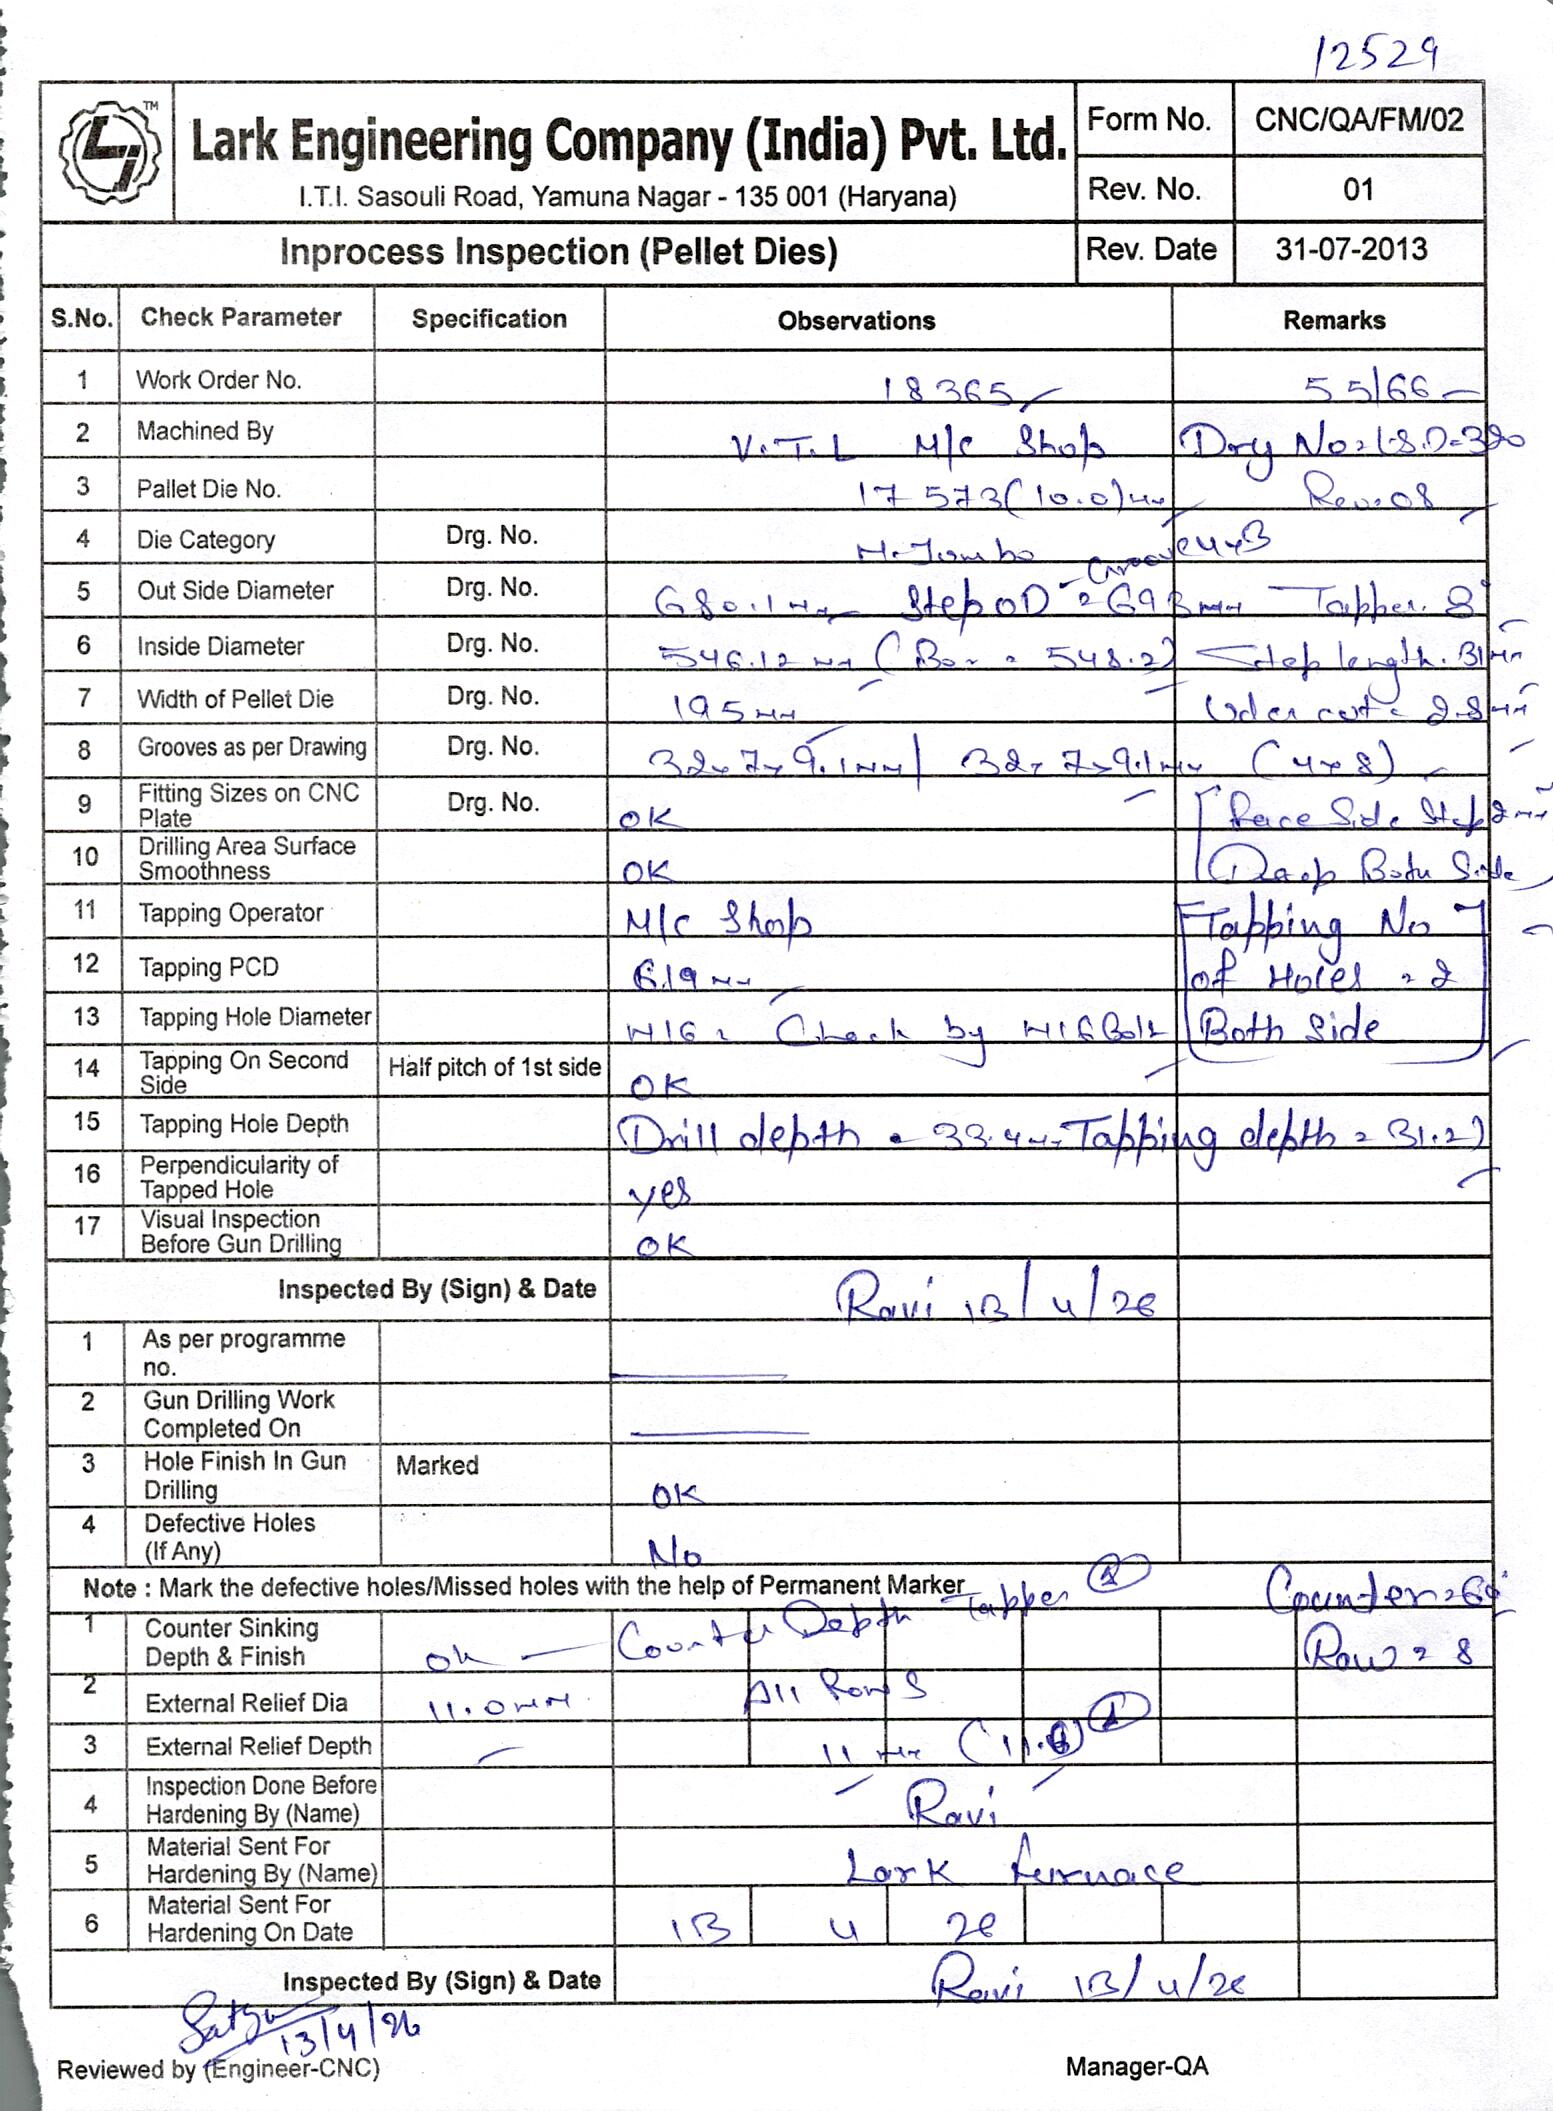 12529
TM
Lark Engineering Company (India) Pvt. Ltd.
I.T.I. Sasouli Road, Yamuna Nagar - 135 001 (Haryana)
Form No. CNC/QA/FM/02
Rev. No. 01
Inprocess Inspection (Pellet Dies) Rev. Date 31-07-2013
S.No. Check Parameter Specification Observations Remarks
1 Work Order No. 18365 55/66
2 Machined By V.T.L M/c Shop
3 Pallet Die No. 17573(10.0)mm Rev.08
4 Die Category Drg. No. M.Jumbo Groove 4x3
5 Out Side Diameter Drg. No. 680.1mm Step OD = 693mm Tapper. 8°
6 Inside Diameter Drg. No. 546.12mm (Bor = 548.2) Step length. 31mm
7 Width of Pellet Die Drg. No. 195mm Uder cut = 2.8mm
8 Grooves as per Drawing Drg. No. 32x7x9.1mm/ 32x7x9.1mm (4x8)
9 Fitting Sizes on CNC Plate Drg. No. OK Race Side Step 2mm
10 Drilling Area Surface Smoothness OK Deep Both Side
11 Tapping Operator M/c Shop Tapping No
12 Tapping PCD 619mm of Holes = 2
13 Tapping Hole Diameter M16 = Check by M16 Bolt Both Side
14 Tapping On Second Side Half pitch of 1st side OK
15 Tapping Hole Depth Drill depth = 33.4mm Tapping depth = 31.2)
16 Perpendicularity of Tapped Hole yes
17 Visual Inspection Before Gun Drilling OK
Inspected By (Sign) & Date Ravi 13/4/26
1 As per programme no.
2 Gun Drilling Work Completed On
3 Hole Finish In Gun Drilling Marked OK
4 Defective Holes (If Any) No
Note : Mark the defective holes/Missed holes with the help of Permanent Marker
1 Counter Sinking Depth & Finish ok Counter Depth Tapper Counter = 60° Row = 8
2 External Relief Dia 11.0mm All Rows
3 External Relief Depth 11mm
4 Inspection Done Before Hardening By (Name) Ravi
5 Material Sent For Hardening By (Name) Lark furnace
6 Material Sent For Hardening On Date 13 4 26
Inspected By (Sign) & Date Ravi 13/4/26
13/4/26
Reviewed by (Engineer-CNC) Manager-QA